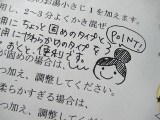 のお湯小さじ1を加えます。
2～3分よくかき混ぜ
用にちょっと固めのタイプと
用にやわらかめのタイプを
おくと重宝します。
POINT!
が固めの場合は、
つ加え、調整してください。
柔らかすぎる場合は、
つ加え、調整してください。